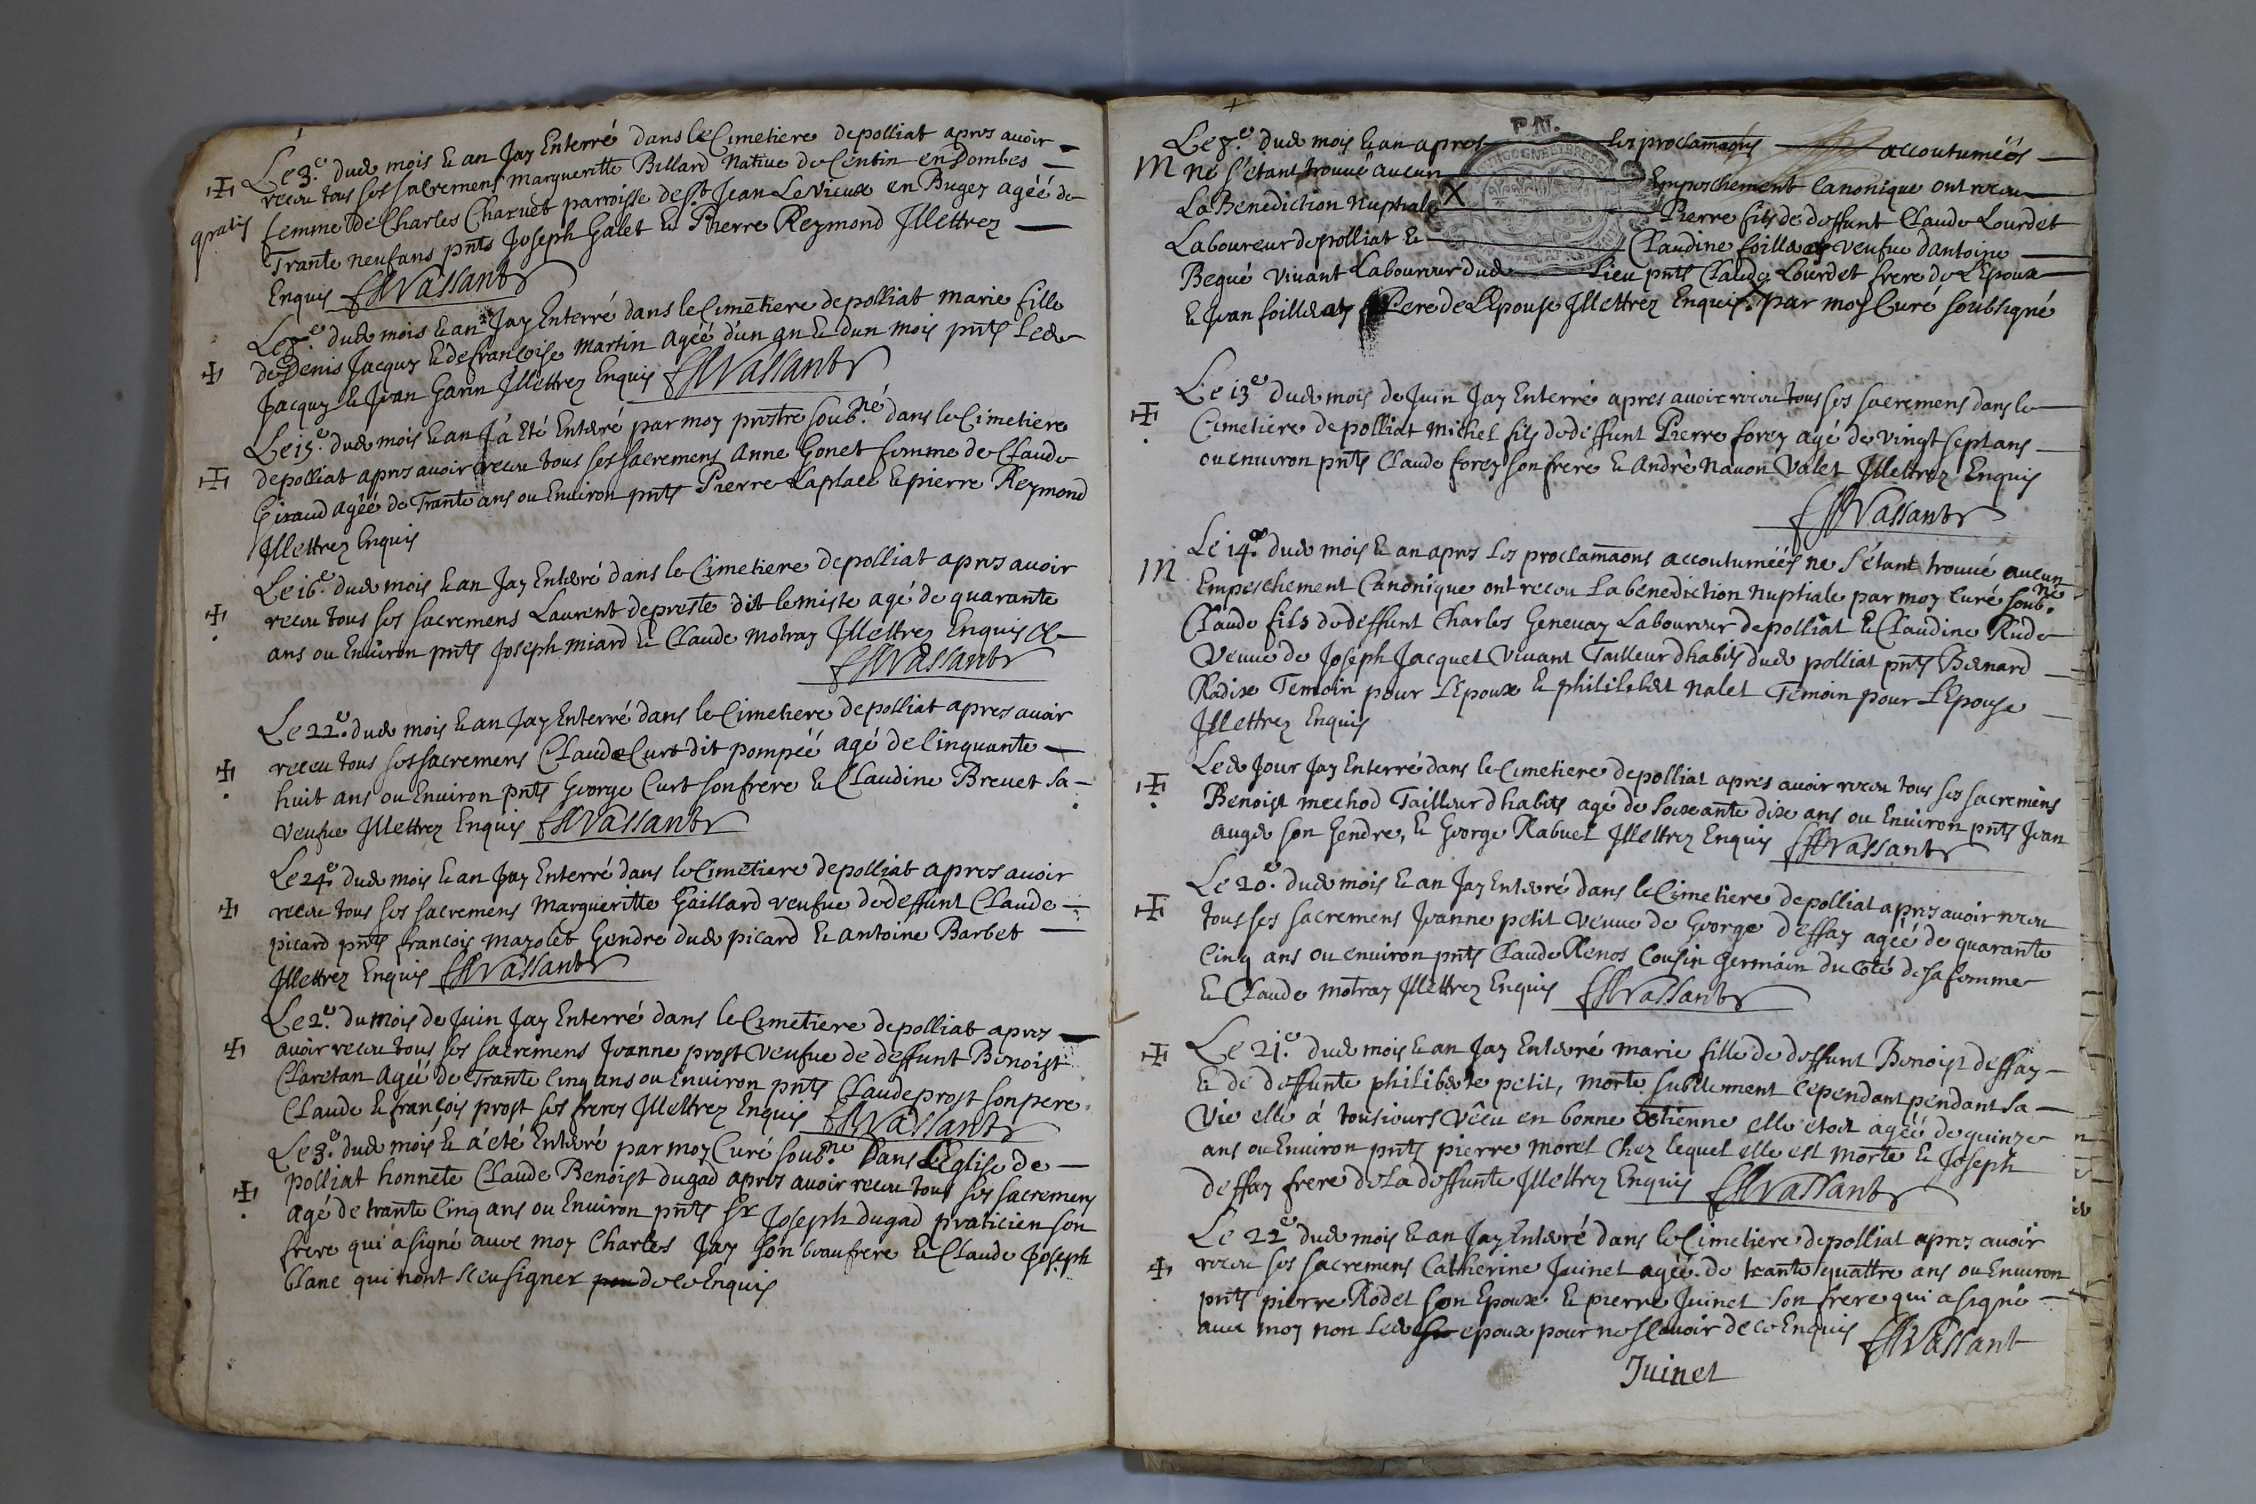 Le 3.e dud mois & an Jay Enterré dans le Cimetiere de polliat apres avoir
receu tous ses sacremens marguerittte Billard Native de Centin en Dombes
gratis femme de Charles Charvet parroisse de st Jean Le vieux en Bugey agéé de
Trante neuf ans pnts Joseph Galet & Pierre Reymond Jllettrez
Enquis Vassant
Le 7.e dud mois & an Jay Enterré dans le Cimetiere de polliat marie fille
de Denis Jacquy & de francoise martin agéé d'un an & d'un mois pnts Led
Jacquy & Jean Garin Jllettrez Enquis Vassant
Le 15.e dud mois & an J'a Eté Enterré par moy prestre soub.né dans le Cimetiere
de polliat apres avoir receu tous ses sacremens Anne Gonet femme de Claude
Giraud agéé de Trante ans ou Environ pnts Pierre Laplace & pierre Reymond
Jllettrez Enquis
Le 16.e dud mois & an Jay Enterré dans le Cimetiere de polliat apres avoir
receu tous ses sacremens Laurent depreste dit lemiste agé de quarante
ans ou Environ pnts Joseph miard & Claude motray Jllettrez Enquis
Vassant
Le 22.e dud mois & an Jay Enterré dans le Cimetiere de polliat apres avoir
receu tous ses sacremens Claude Curt dit pompéé agé de Cinquante
huit ans ou Environ pnts George Curt son frere & Claudine Brevet sa
veufve Jllettrez Enquis Vassant
Le 24.e dud mois & an Jay Enterré dans le Cimetiere de polliat apres avoir
receu tous ses sacremens margueritte Gaillard veufue de deffunt Claude
picard pnts francois mazolet Gendre dud picard & antoine Barbet
Jllettrez Enquis Vassant
Le 2.e du mois de Juin Jay Enterré dans le Cimetiere de polliat apres
avoir receu tous ses sacremens Jeanne prost Veufue de deffunt Benoist
Claretan Agéé de Trante Cinq ans ou Environ pnts Claude prost son pere
Claude & françois prost ses freres Jllettrez Enquis Vassant
Le 3.e dud mois & a été Enterré par moy Curé soub.né Dans L'Eglise de
polliat honnete Claude Benoist dugad apres avoir receu tous ses sacremens
agé de trante Cinq ans ou Environ pnts Sr Joseph dugad praticien son
frere qui a signé avec moy Charles Jay son beaufrere & Claude Joseph
blanc qui n'ont sceu signer de ce Enquis
P.N.
Le 7.e dud mois & an apres les proclamaons accoutuméés
M ne s'étant trouvé aucun Empeschement Canonique ont receu
La Benediction Nuptiale X Pierre fils de deffunt Claude Lourdet
Laboureur de polliat & Claudine foillet veufue d'antoine
Begué vivant Laboureur dud Lieu pnts Claude Lourdet frere de L'Epoux
& Jean foillet Pere de L'Epouse Jllettrez Enquis X par moy Curé soubsigné
Le 13.e dud mois de Juin Jay Enterré apres avoir receu tous ses sacremens dans le
Cimetiere de polliat Michel fils de deffunt Pierre forey agé de vingt sept ans
ou environ pnts Claude forey son frere & André Navon Valet Jllettrez Enquis
Vassant
Le 14.e dud mois & an apres Les proclamaons accoutuméés ne s'étant trouvé aucun
M Empeschement Canonique ont receu La benediction nuptiale par moy Curé soub.né
Claude fils de deffunt Charles Genevay Laboureur de polliat & Claudine Rude
Veuve de Joseph Jacquet vivant Tailleur d'habits dud polliat pnts Bernard
Radix Temoin pour L'Epoux & philibert nalet Temoin pour L'Epouse
Jllettrez Enquis
Led Jour Jay Enterré dans le Cimetiere de polliat apres avoir receu tous ses sacremens
Benoist mechod Tailleur d'habits agé de soixante dix ans ou Environ pnts Jean
auged son Gendre, & George Rabuel Jllettrez Enquis Vassant
Le 20.e dud mois & an Jay Enterré dans le Cimetiere de polliat apres avoir receu
tous ses sacremens Jeanne petit veuve de George deffay agéé de quarante
Cinq ans ou environ pnts Claude Renos Cousin Germain du coté de sa femme
& Claude motray Jllettrez Enquis Vassant
Le 21.e dud mois & an Jay Enterré marie fille de deffunt Benoist deffay
& de deffunte philiberte petit, morte subitement cependant pendant sa
vie elle à tousiours vêcu en bonne Xstienne elle étoit agéé de quinze
ans ou Environ pnts pierre morel chez lequel elle est morte & Joseph
deffay frere de La deffunte Jllettrez Enquis Vassant
Le 22.e dud mois & an Jay Enterré dans le Cimetiere de polliat apres avoir
receu ses sacremens Catherine Juinet agéé de trante quattre ans ou Environ
pnts pierre Rodet son Epoux & pierre Juinet son frere qui a signé
avec moy non Led epoux pour ne scavoir de ce Enquis Vassant
Juinet